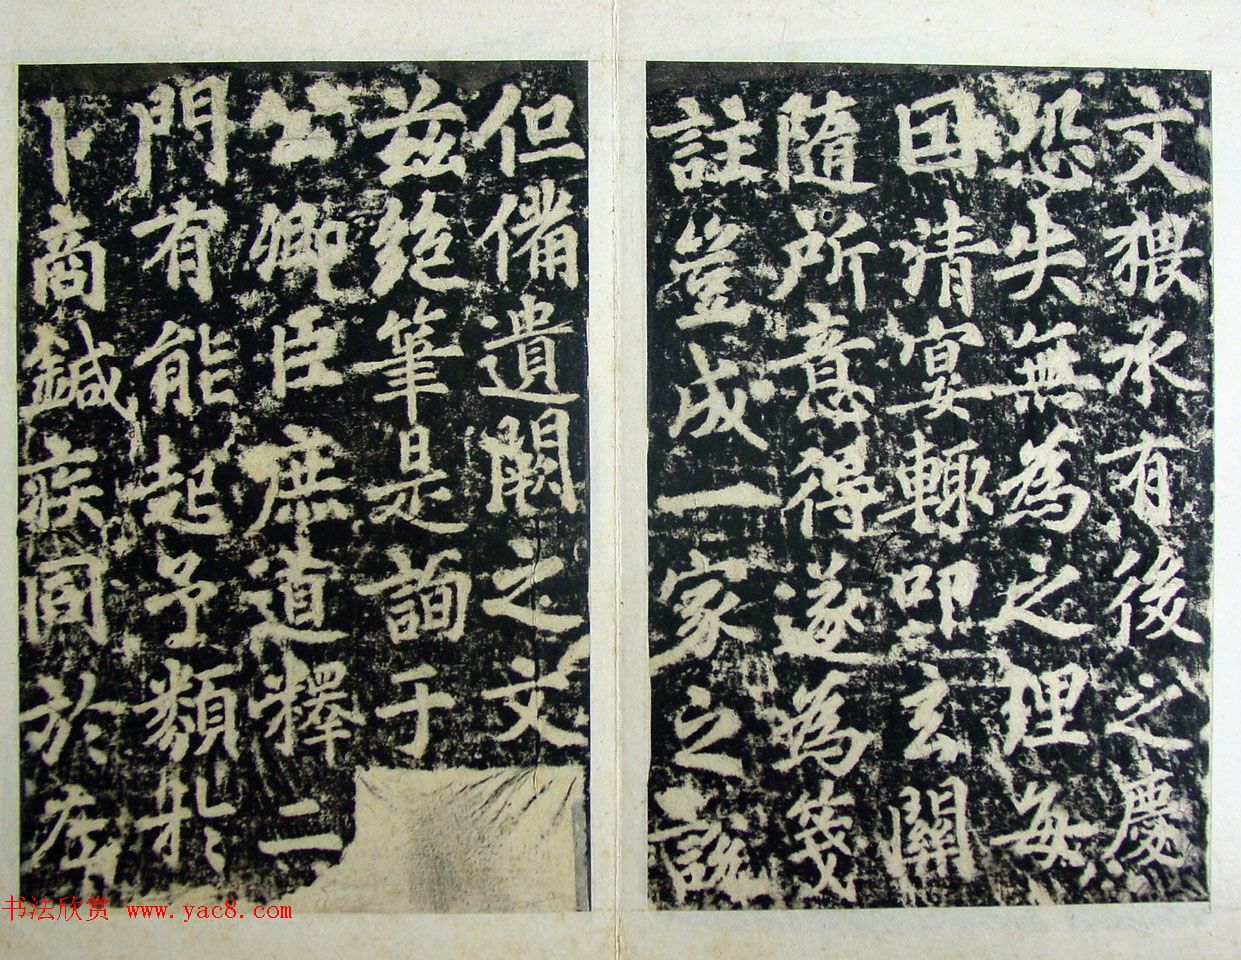 文猥承有後之慶
恐失無為之理每
因清宴輙叩玄關
隨所意得遂為箋
註豈成一家之說
但備遺闕之文
兹絶筆是詢于
公卿臣庶道釋二
門有能起予類於
卜商鍼疾同於左
书法欣赏 www.yac8.com